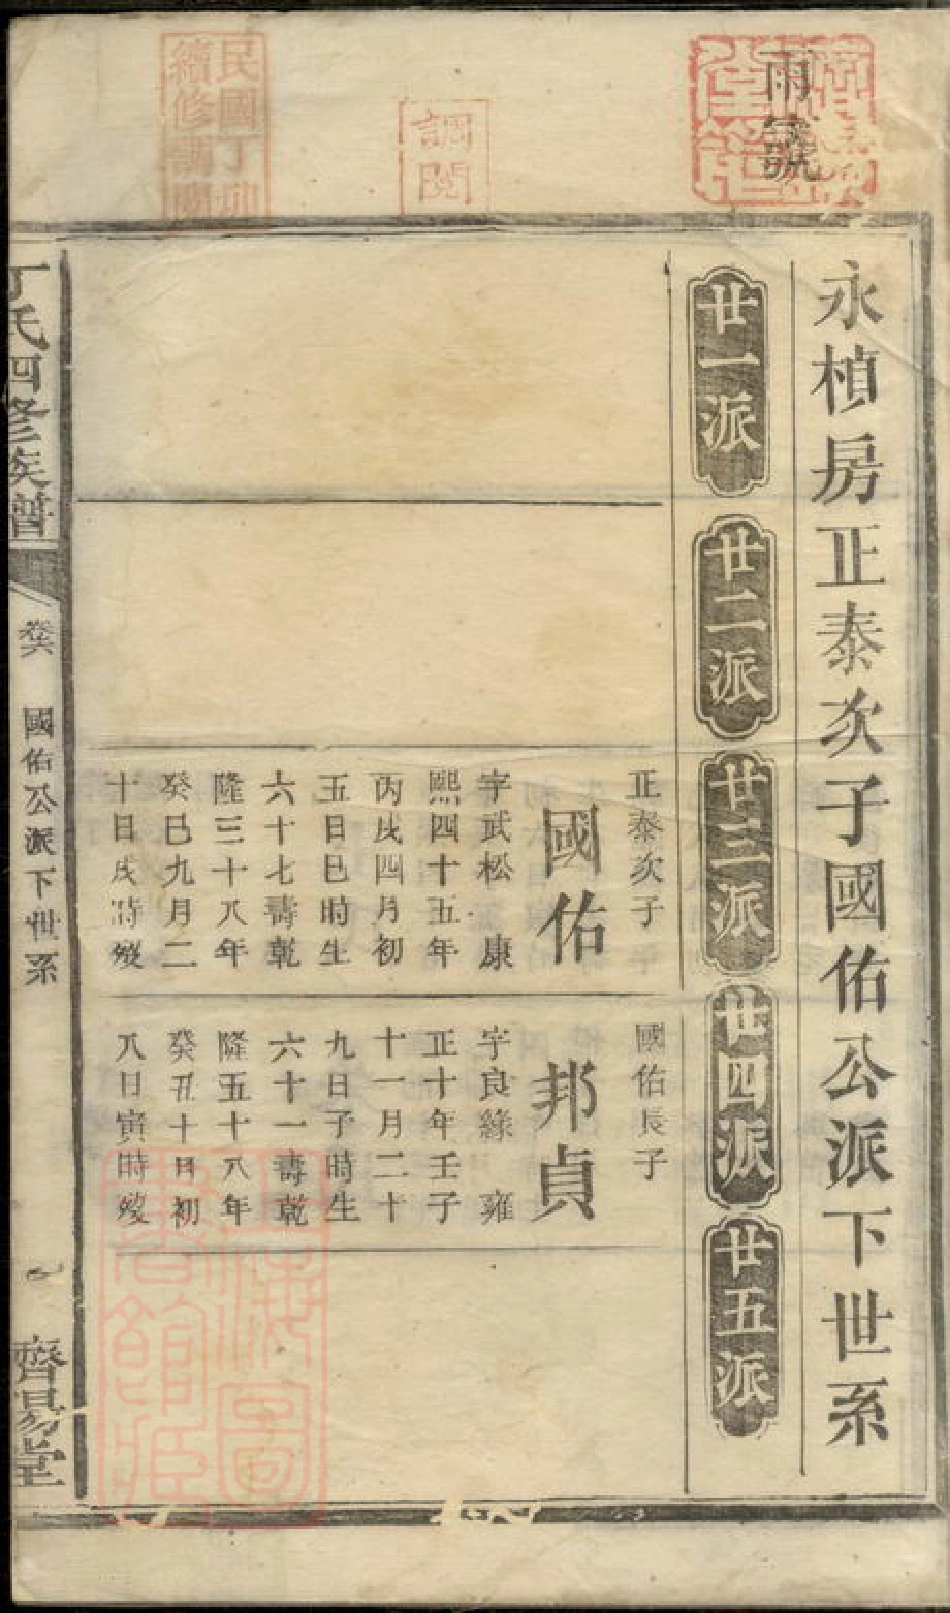 雨號
調閱
民國丁卯
續修調閱
永楨房正泰次子國佑公派下世系
廿一派
廿二派
廿三派
廿四派
廿五派
正泰次子
國佑
字武松 康
熙四十五年
丙戌四月初
五日巳時生
六十七壽乾
隆三十八年
癸巳九月二
十日戌時歿
國佑長子
邦貞
字良緣 雍
正十年壬子
十一月二十
九日子時生
六十一壽乾
隆五十八年
癸丑十月初
八日寅時歿
丁氏四修族譜
卷六 國佑公派下世系
一
齊陽堂
上海圖
書館藏